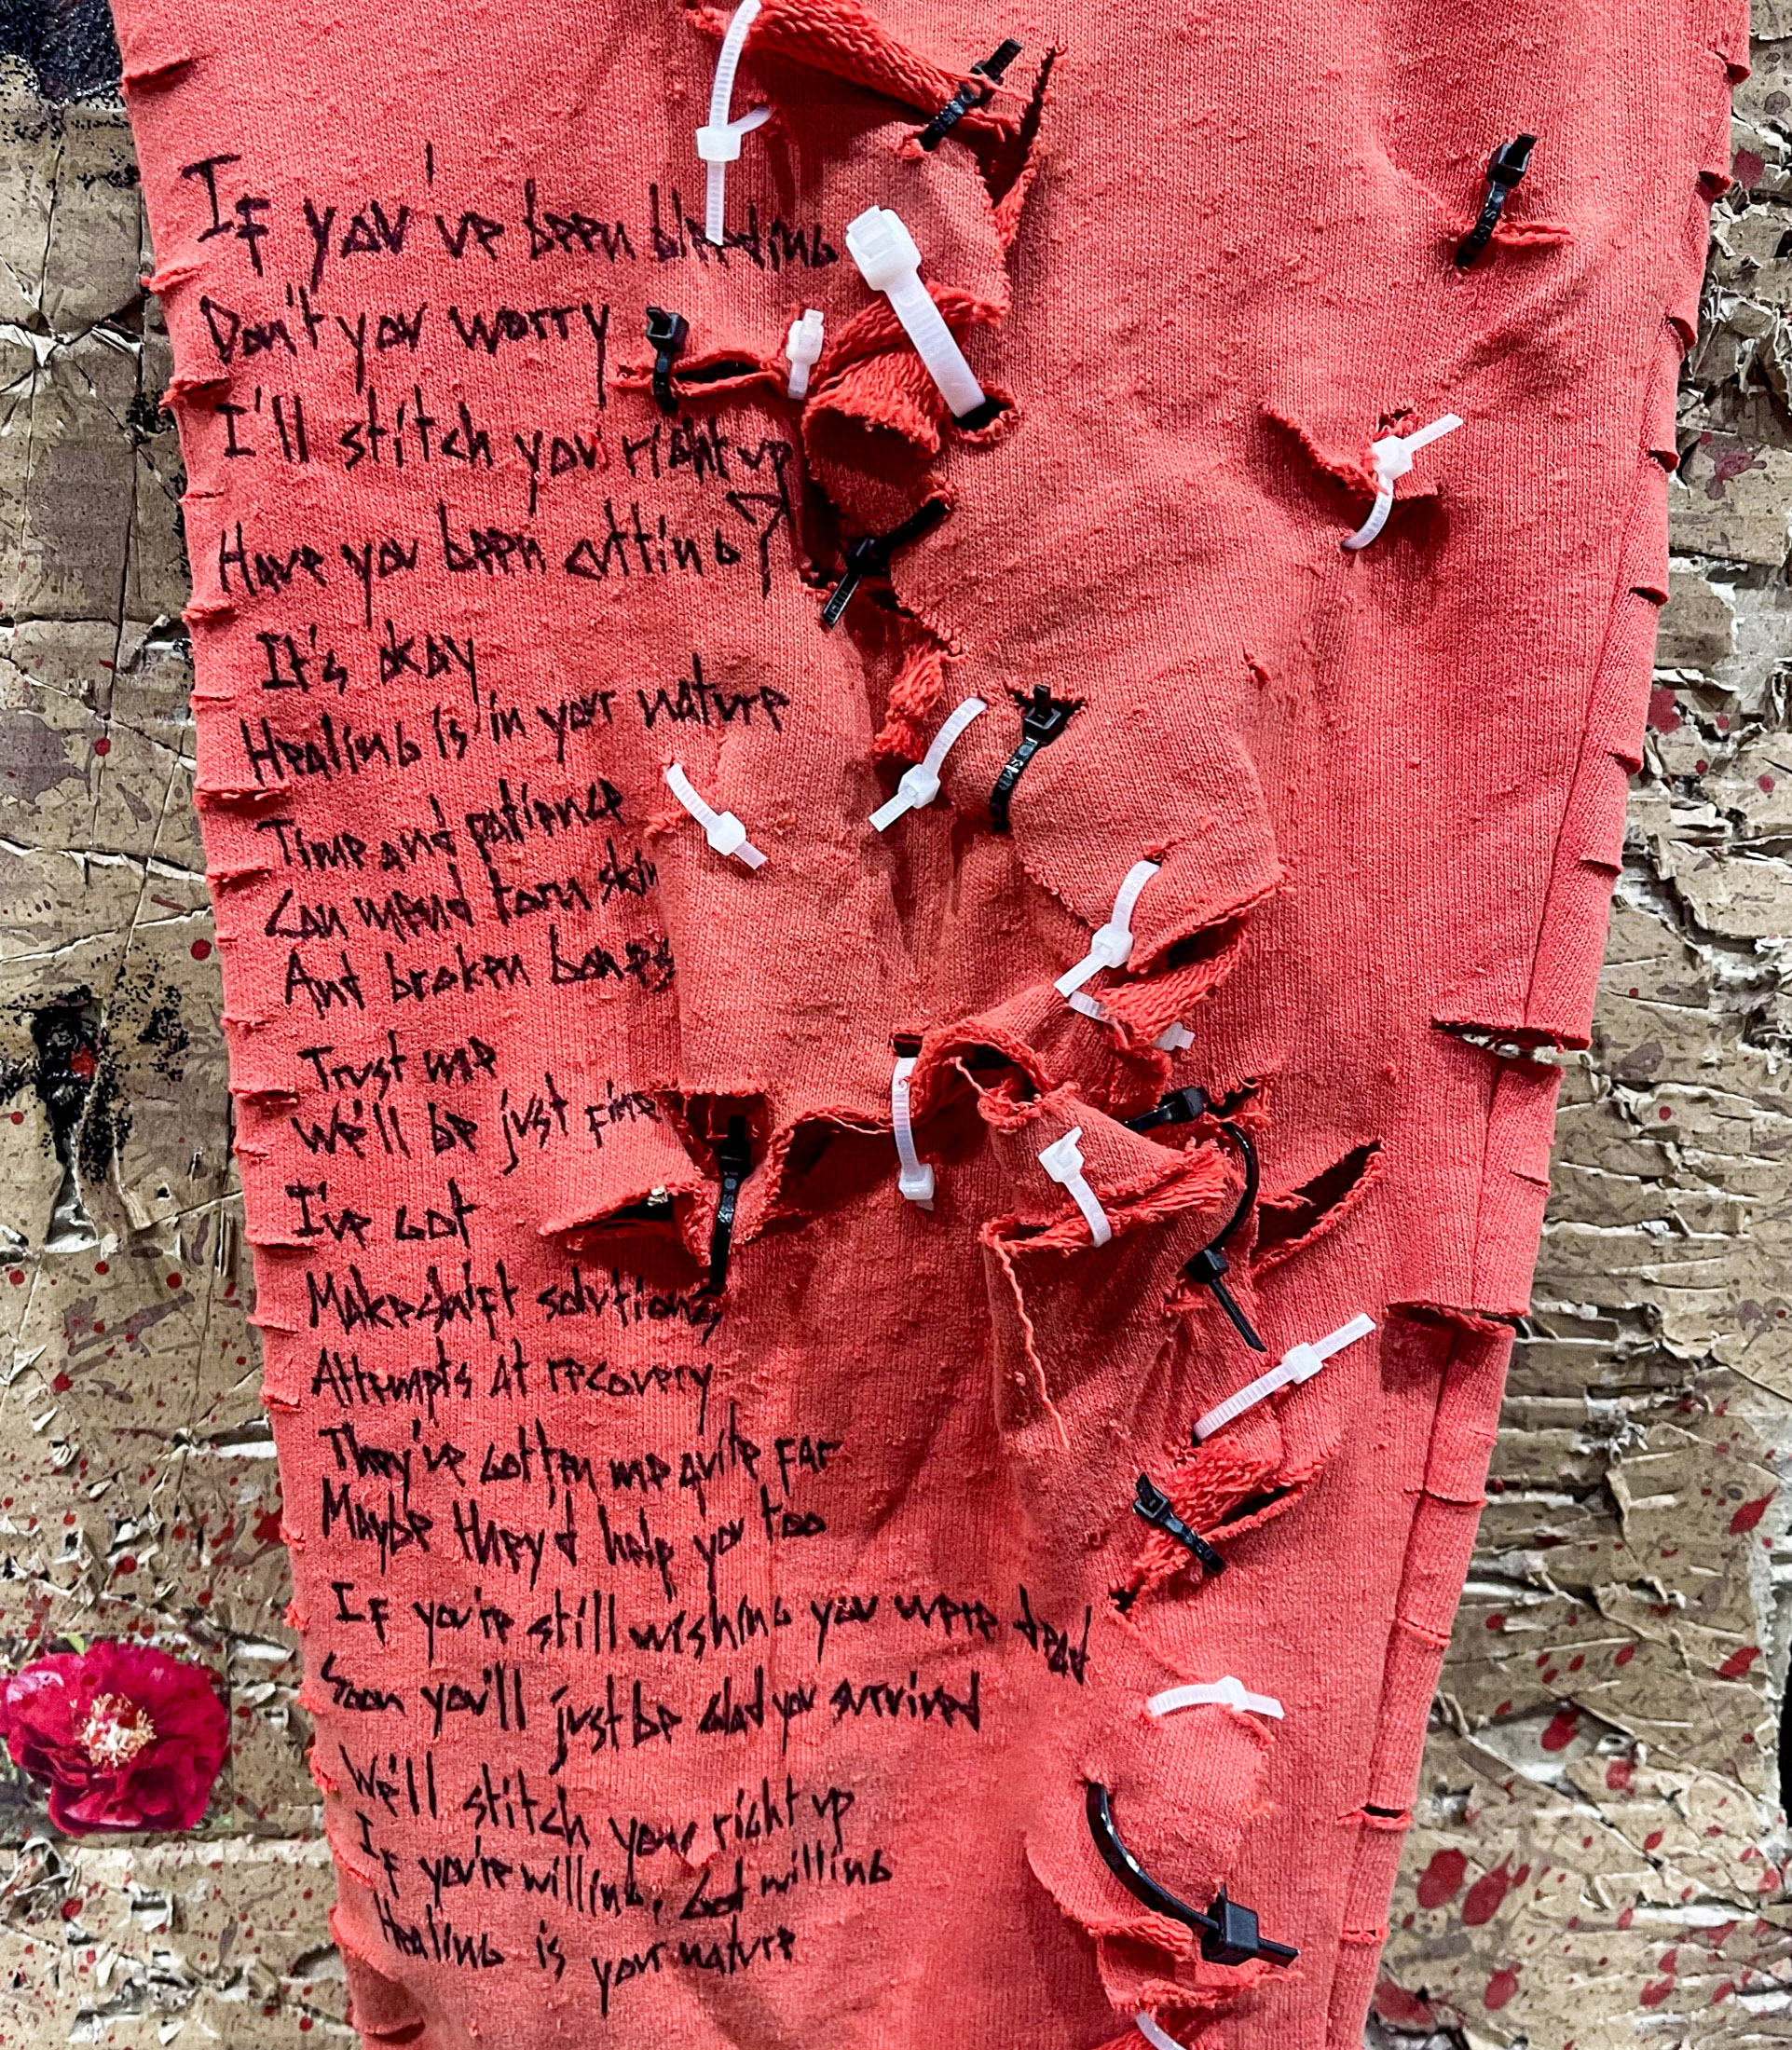 If you've been bleeding
Don't you worry
I'll stitch you right up
Have you been cutting?
It's okay
Healing is in your nature
Time and patience
Can mend torn skin
And broken bones
Trust me
We'll be just fine
I've got
Makeshift solutions
Attempts at recovery
They've gotten me quite far
Maybe they'd help you too
If you're still wishing you were dead
Soon you'll just be glad you survived
We'll stitch your right up
If you're willing, God willing
Healing is your nature